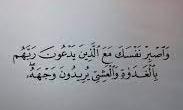 وَاصْبِرْ نَفْسَكَ مَعَ الَّذِينَ يَدْعُونَ رَبَّهُم
بِالْغَدَوٰةِ وَالْعَشِيِّ يُرِيدُونَ وَجْهَهُ